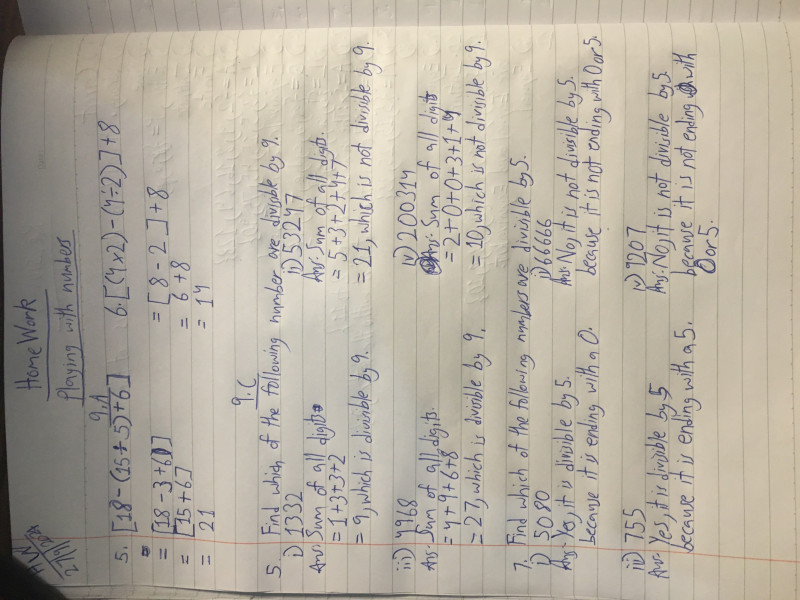 Home Work
Playing with number
H.W
9.A
5. [18-(15÷5)+6]
= [18-3+6]
= [15+6]
= 21
6. [(4×2)-(4÷2)]+8
= [8-2]+8
= 6+8
= 14
9.C
5. Find which of the following number are divisible by 9.
i) 1332
Ans: Sum of all digits
= 1+3+3+2
= 9, which is divisible by 9.
ii) 53247
Ans: Sum of all digits.
= 5+3+2+4+7
= 21, which is not divisible by 9.
iii) 4968
Ans: Sum of all digits.
= 4+9+6+8
= 27, which is divisible by 9.
iv) 200314
Ans: Sum of all digits
= 2+0+0+3+1+4
= 10, which is not divisible by 9.
7. Find which of the following numbers are divisible by 5.
i) 5080
Ans: Yes, it is divisible by 5.
because it is ending with a 0.
ii) 66666
Ans: No, it is not divisible by 5.
because it is not ending with 0 or 5.
iii) 755
Ans: Yes, it is divisible by 5
because it is ending with a 5.
iv) 9207
Ans: No, it is not divisible by 5.
because it is not ending with
0 or 5.